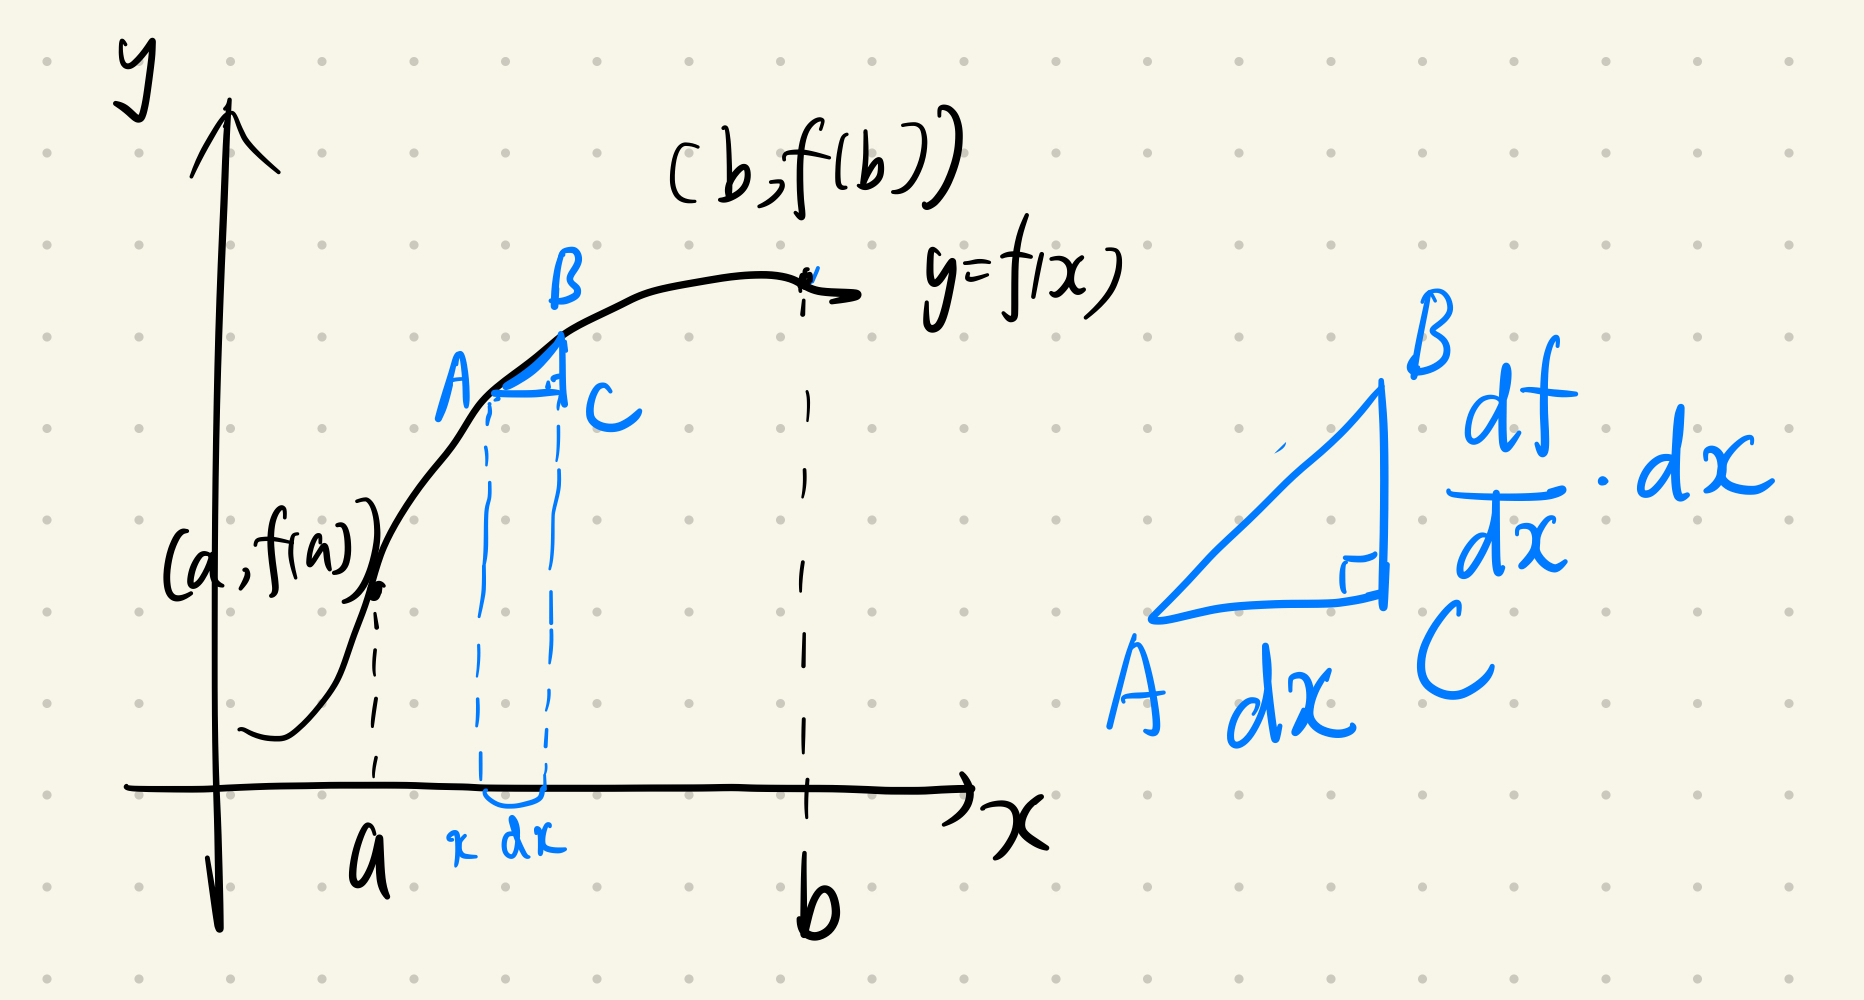 y
(b,f(b))
y=f(x)
B
A
C
(a,f(a))
x
a
x
dx
b
B
df/dx · dx
A
dx
C